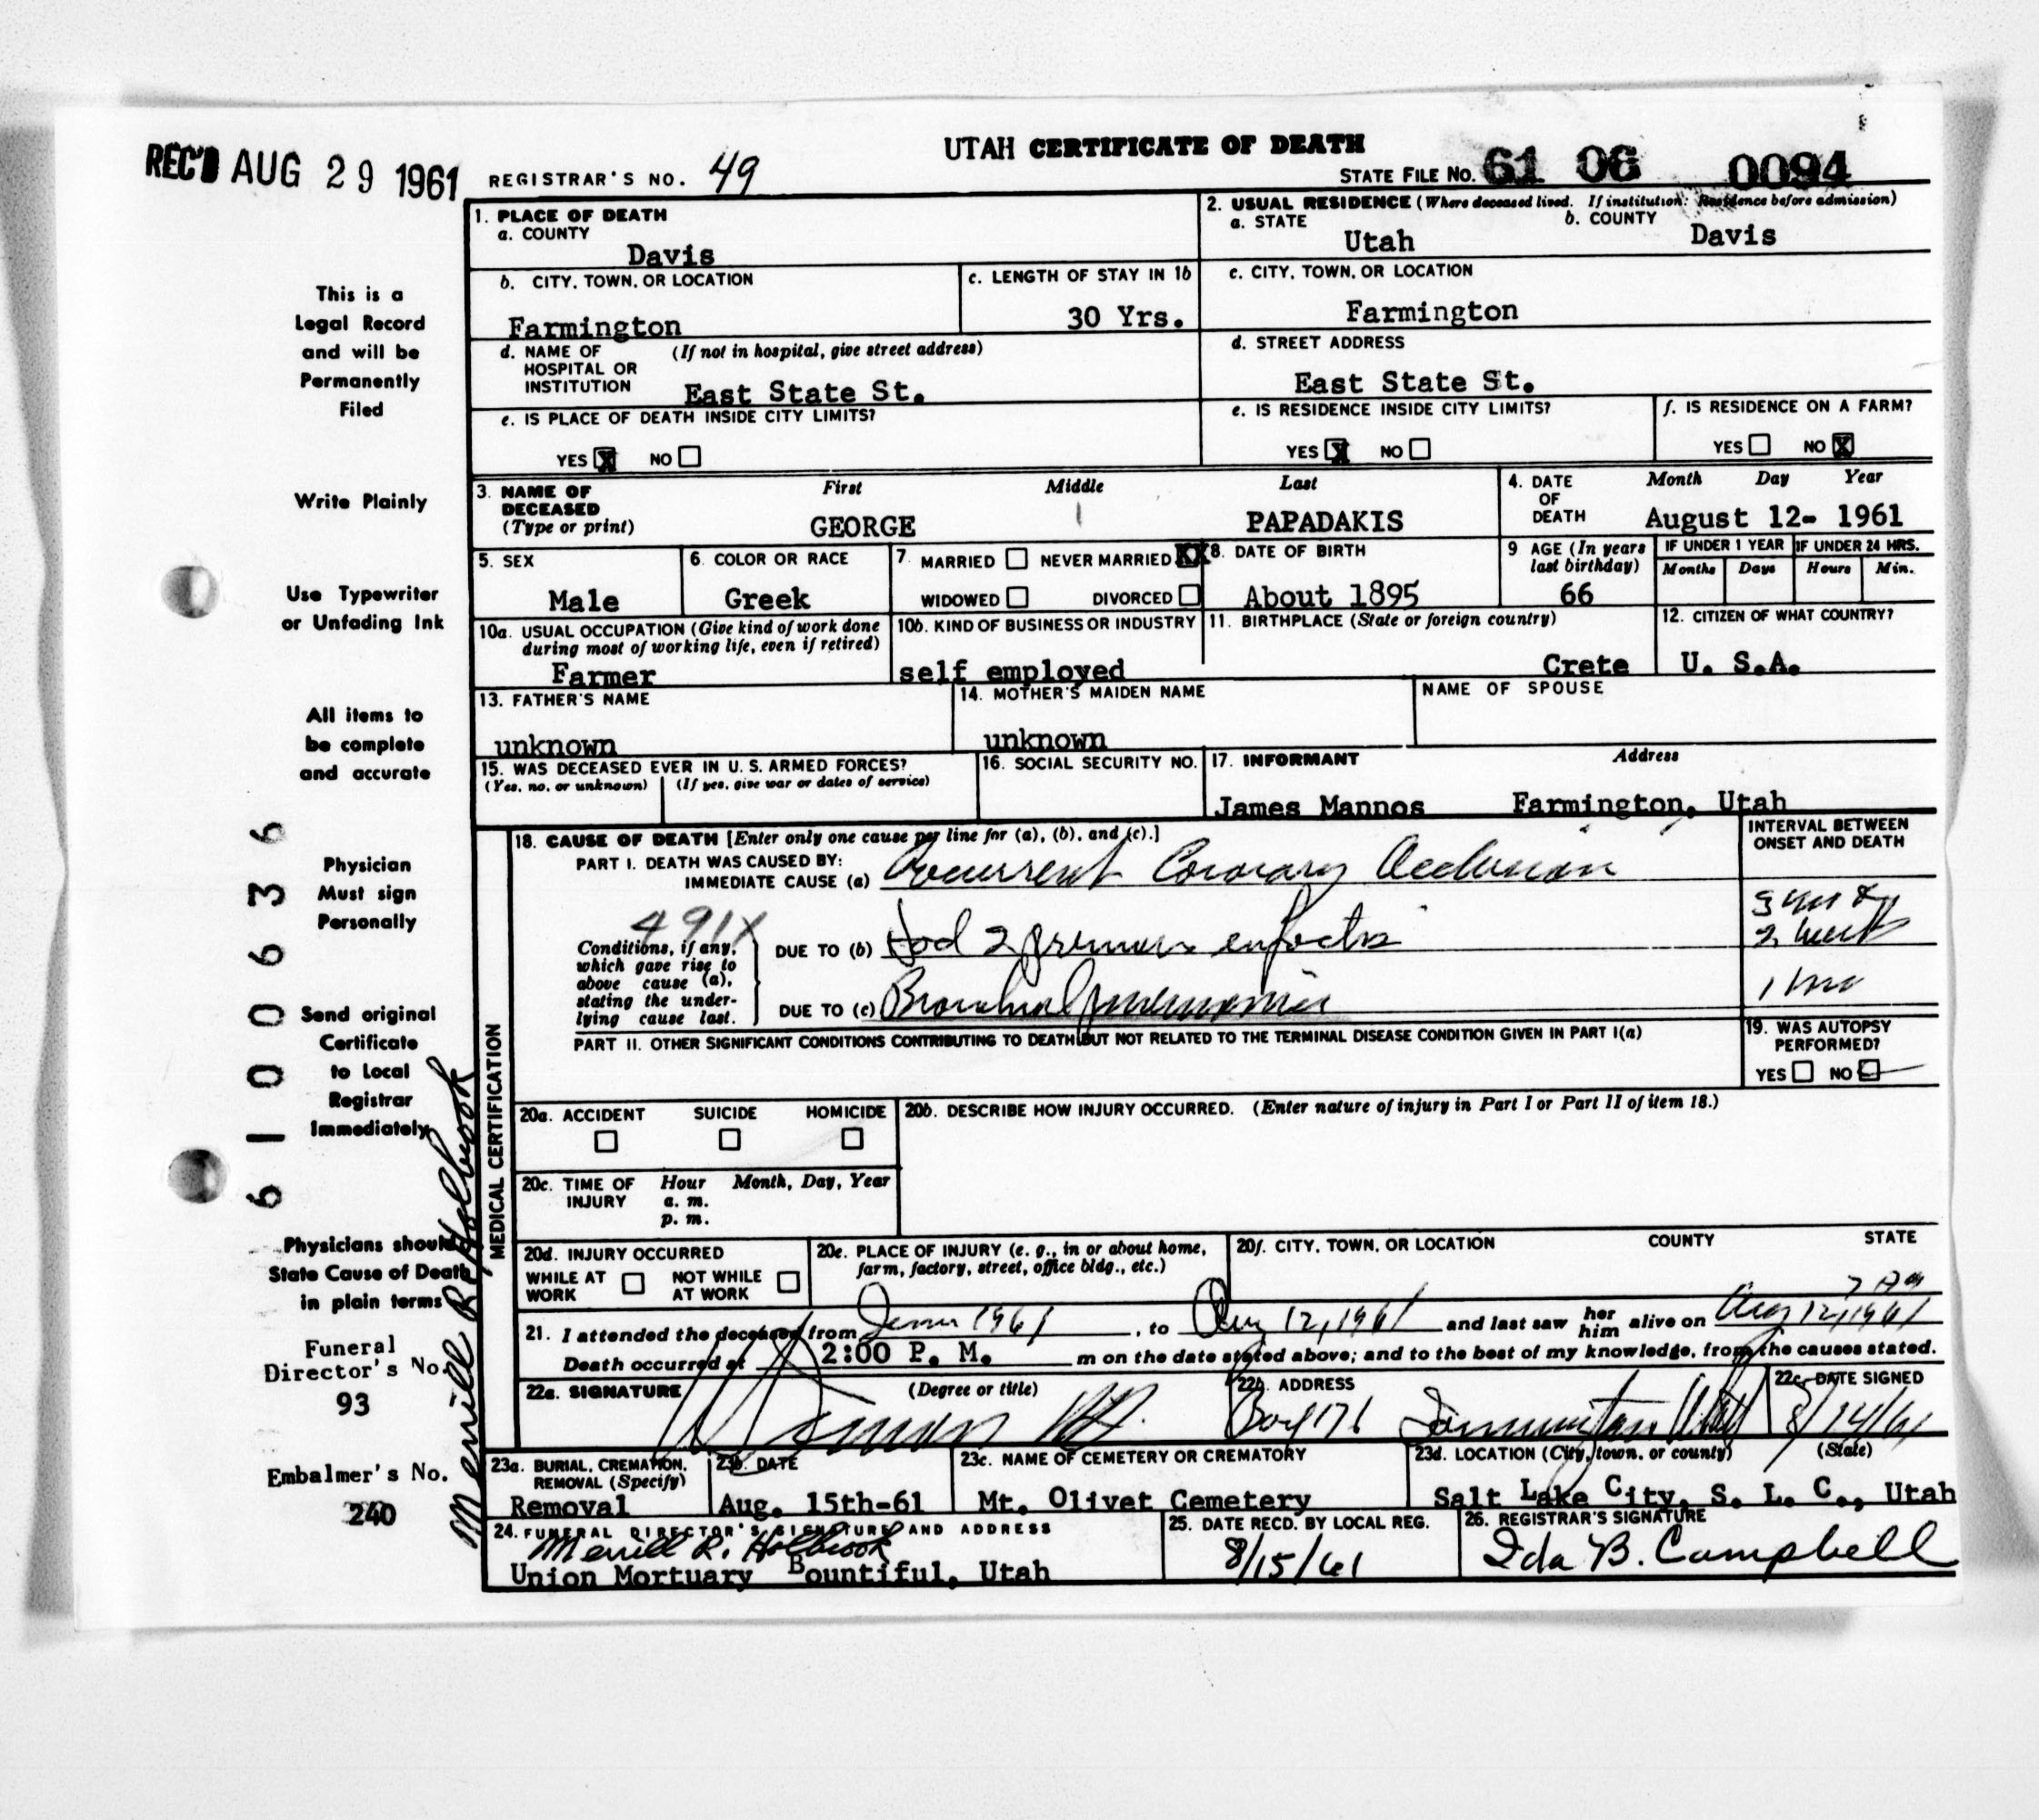 UTAH CERTIFICATE OF DEATH
REC'D AUG 29 1961
REGISTRAR'S NO. 49
STATE FILE NO. 61 06 0094
1. PLACE OF DEATH
a. COUNTY
Davis
2. USUAL RESIDENCE (Where deceased lived. If institution: Residence before admission)
a. STATE
Utah
b. COUNTY
Davis
b. CITY, TOWN, OR LOCATION
Farmington
c. LENGTH OF STAY IN 1b
30 Yrs.
c. CITY, TOWN, OR LOCATION
Farmington
d. NAME OF HOSPITAL OR INSTITUTION
(If not in hospital, give street address)
East State St.
d. STREET ADDRESS
East State St.
e. IS PLACE OF DEATH INSIDE CITY LIMITS?
YES X NO
e. IS RESIDENCE INSIDE CITY LIMITS?
YES X NO
f. IS RESIDENCE ON A FARM?
YES NO X
3. NAME OF DECEASED
(Type or print)
First Middle Last
GEORGE PAPADAKIS
4. DATE OF DEATH
Month Day Year
August 12- 1961
5. SEX
Male
6. COLOR OR RACE
Greek
7. MARRIED NEVER MARRIED XX
WIDOWED DIVORCED
8. DATE OF BIRTH
About 1895
9 AGE (In years last birthday)
66
IF UNDER 1 YEAR
Months Days
IF UNDER 24 HRS.
Hours Min.
10a. USUAL OCCUPATION (Give kind of work done during most of working life, even if retired)
Farmer
10b. KIND OF BUSINESS OR INDUSTRY
self employed
11. BIRTHPLACE (State or foreign country)
Crete
12. CITIZEN OF WHAT COUNTRY?
U. S.A.
13. FATHER'S NAME
unknown
14. MOTHER'S MAIDEN NAME
unknown
NAME OF SPOUSE
15. WAS DECEASED EVER IN U. S. ARMED FORCES?
(Yes, no, or unknown) (If yes, give war or dates of service)
16. SOCIAL SECURITY NO.
17. INFORMANT Address
James Mannos Farmington, Utah
18. CAUSE OF DEATH [Enter only one cause per line for (a), (b), and (c).]
PART I. DEATH WAS CAUSED BY:
IMMEDIATE CAUSE (a) Recurrent Coronary Occlusion
INTERVAL BETWEEN ONSET AND DEATH
491X
Conditions, if any, which gave rise to above cause (a), stating the underlying cause last.
DUE TO (b) Had 2
DUE TO (c) Bronchial pneumonia
PART II. OTHER SIGNIFICANT CONDITIONS CONTRIBUTING TO DEATH BUT NOT RELATED TO THE TERMINAL DISEASE CONDITION GIVEN IN PART I(a)
19. WAS AUTOPSY PERFORMED?
YES NO
20a. ACCIDENT SUICIDE HOMICIDE
20b. DESCRIBE HOW INJURY OCCURRED. (Enter nature of injury in Part I or Part II of item 18.)
20c. TIME OF INJURY
Hour Month, Day, Year
a. m.
p. m.
20d. INJURY OCCURRED
WHILE AT WORK NOT WHILE AT WORK
20e. PLACE OF INJURY (e. g., in or about home, farm, factory, street, office bldg., etc.)
20f. CITY, TOWN, OR LOCATION COUNTY STATE
21. I attended the deceased from 1961, to Aug 12, 1961 and last saw her him alive on Aug 12, 1961
Death occurred at 2:00 P. M. m on the date stated above; and to the best of my knowledge, from the causes stated.
22a. SIGNATURE (Degree or title)
22b. ADDRESS
Box 171 Farmington Utah
22c. DATE SIGNED
8/14/61
23a. BURIAL, CREMATION, REMOVAL (Specify)
Removal
23b. DATE
Aug. 15th-61
23c. NAME OF CEMETERY OR CREMATORY
Mt. Olivet Cemetery
23d. LOCATION (City, town, or county) (State)
Salt Lake City, S. L. C., Utah
24. FUNERAL DIRECTOR'S SIGNATURE AND ADDRESS
Merrill R. Holbrook
Union Mortuary Bountiful, Utah
25. DATE RECD. BY LOCAL REG.
8/15/61
26. REGISTRAR'S SIGNATURE
Ida B. Campbell
MEDICAL CERTIFICATION
This is a
Legal Record
and will be
Permanently
Filed
Write Plainly
Use Typewriter
or Unfading Ink
All items to
be complete
and accurate
Physician
Must sign
Personally
Send original
Certificate
to Local
Registrar
Immediately
Physicians should
State Cause of Death
in plain terms
Funeral
Director's No.
93
Embalmer's No.
240
61000636
Merrill R. Holbrook